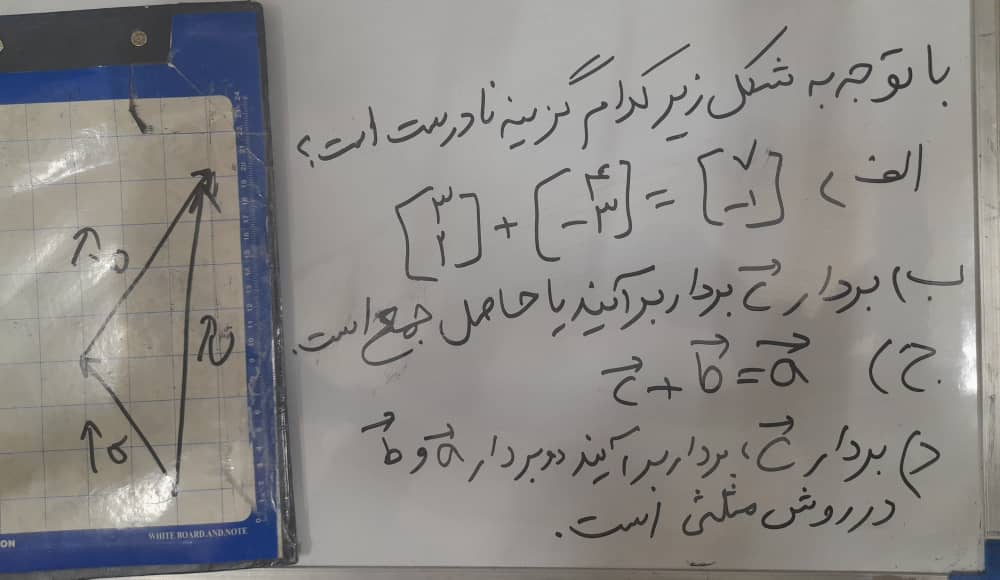 با توجه به شکل زیر کدام گزینه نادرست است؟
الف) [۳ ۲] + [۴ -۳] = [۷ -۱]
ب) بردار c بردار برآیند یا حاصل جمع است.
ج) c + b = a
د) بردار c، بردار برآیند دو بردار a و b
در روش مثلثی است.
b
c
a
WHITE BOARD.AND.NOTE
ON